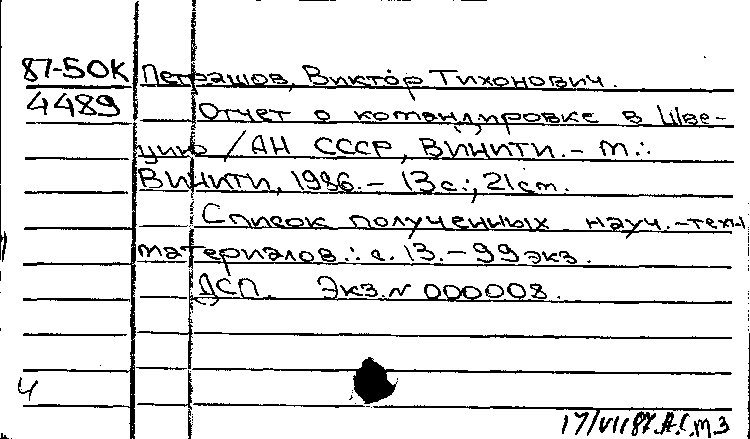 87-50К Петрашов, Виктор Тихонович.
4489 Отчет о командировке в Шве-
цию / АН СССР, ВИНИТИ. - М.:
ВИНИТИ, 1986. - 13 с.; 21 см.
Список полученных науч.-техн
материалов.: с. 13. - 99 экз.
ДСП. Экз. № 000008.
4
17/VII 87.